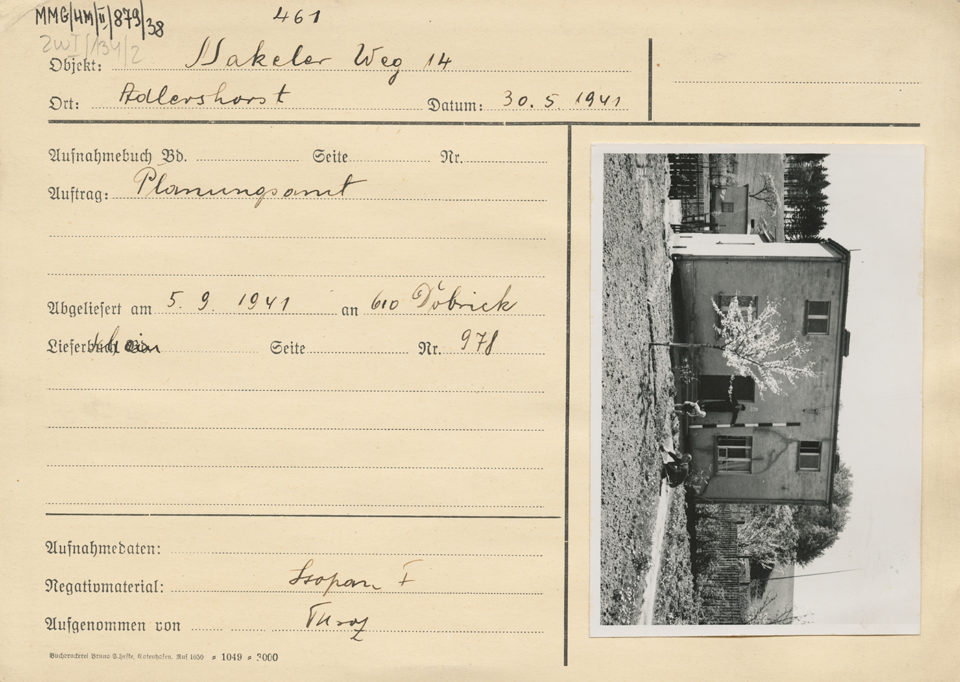 MMG/HM/II/879/38
461
ZWI/134/2
Objekt: Nakeler Weg 14
Ort: Adlershorst Datum: 30.5.1941
Aufnahmebuch Bd. Seite Nr.
Auftrag: Planungsamt
Abgeliefert am 5.9.1941 an 610 Dobrick
Lieferschein Seite Nr. 978
Aufnahmedaten:
Negativmaterial: Isopan F
Aufgenommen von
Buchdruckerei Bruno Gotenhafen. Ruf 1050 1049 3000